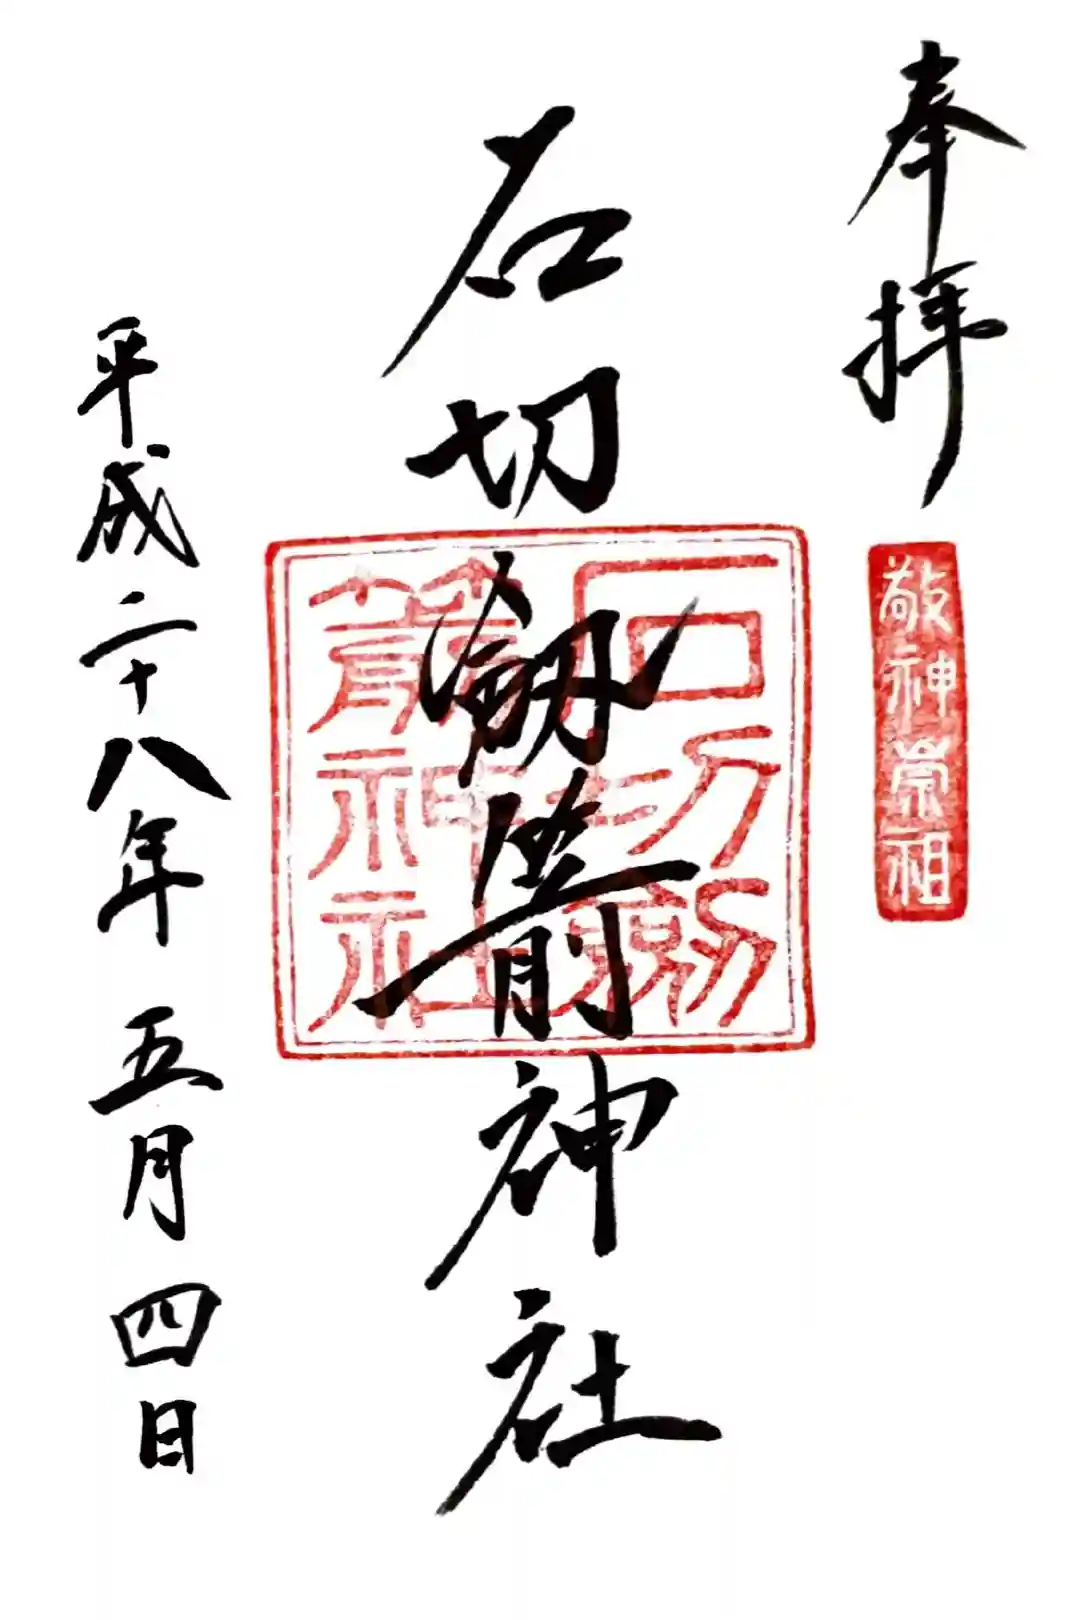 奉拝
敬神崇祖
石切劔箭神社
石切劔箭神社
平成二十八年 五月 四日